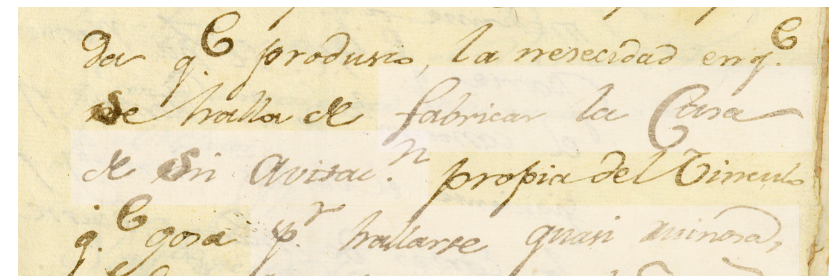 da q.e produsio, la nesecidad en q.e
se halla de fabricar la Casa
de su avitac.n propia del Vinculo
q.e gosa p.r hallarse quasi ruinosa,